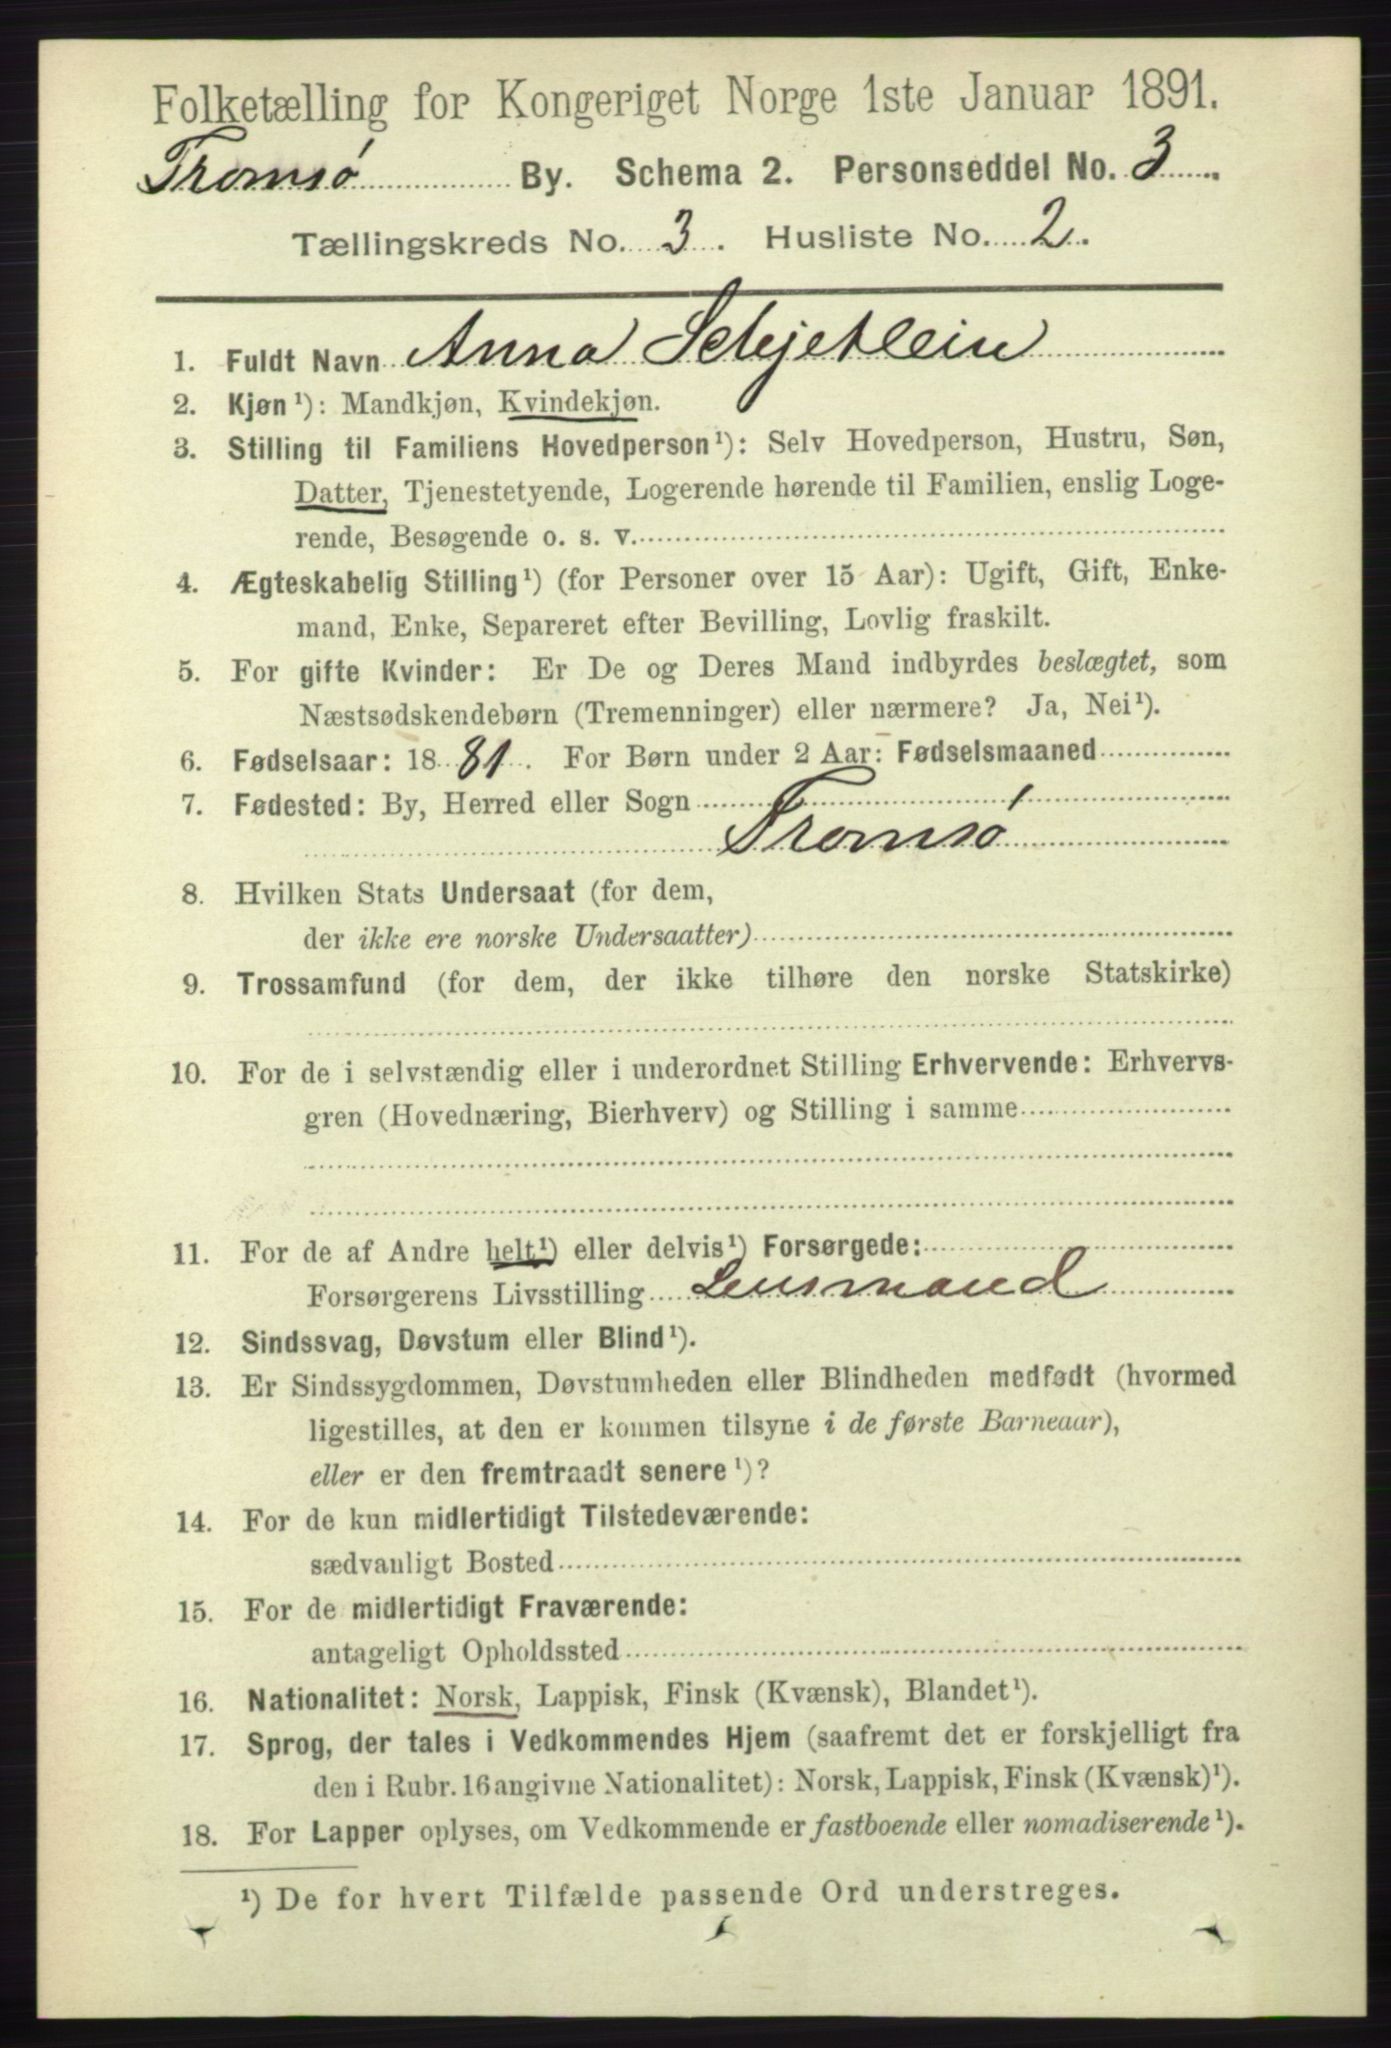 Folketælling for Kongeriget Norge 1ste Januar 1891.
Tromsø By. Schema 2. Personseddel No. 3
Tællingskreds No. 3. Husliste No. 2.
1. Fuldt Navn Anna Schjetlein
2. Kjøn¹): Mandkjøn, Kvindekjøn.
3. Stilling til Familiens Hovedperson¹): Selv Hovedperson, Hustru, Søn,
Datter, Tjenestetyende, Logerende hørende til Familien, enslig Loge-
rende, Besøgende o. s. v.
4. Ægteskabelig Stilling¹) (for Personer over 15 Aar): Ugift, Gift, Enke-
mand, Enke, Separeret efter Bevilling, Lovlig fraskilt.
5. For gifte Kvinder: Er De og Deres Mand indbyrdes beslægtet, som
Næstsødskendebørn (Tremenninger) eller nærmere? Ja, Nei¹).
6. Fødselsaar: 1881. For Børn under 2 Aar: Fødselsmaaned
7. Fødested: By, Herred eller Sogn
Tromsø
8. Hvilken Stats Undersaat (for dem,
der ikke ere norske Undersaatter)
9. Trossamfund (for dem, der ikke tilhøre den norske Statskirke)
10. For de i selvstændig eller i underordnet Stilling Erhvervende: Erhvervs-
gren (Hovednæring, Bierhverv) og Stilling i samme
11. For de af Andre helt¹) eller delvis¹) Forsørgede:
Forsørgerens Livsstilling Lensmand
12. Sindssvag, Døvstum eller Blind¹).
13. Er Sindssygdommen, Døvstumheden eller Blindheden medfødt (hvormed
ligestilles, at den er kommen tilsyne i de første Barneaar),
eller er den fremtraadt senere¹)?
14. For de kun midlertidigt Tilstedeværende:
sædvanligt Bosted
15. For de midlertidigt Fraværende:
antageligt Opholdssted
16. Nationalitet: Norsk, Lappisk, Finsk (Kvænsk), Blandet¹).
17. Sprog, der tales i Vedkommendes Hjem (saafremt det er forskjelligt fra
den i Rubr. 16 angivne Nationalitet): Norsk, Lappisk, Finsk (Kvænsk)¹).
18. For Lapper oplyses, om Vedkommende er fastboende eller nomadiserende¹).
¹) De for hvert Tilfælde passende Ord understreges.